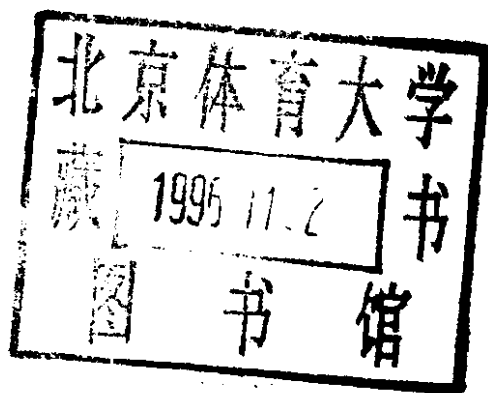 北京体育大学
藏 1996 11. 2 书
图 书 馆